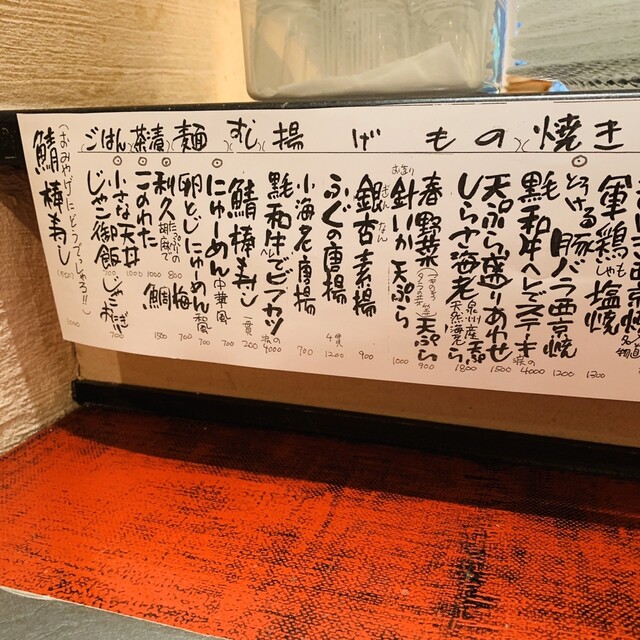 焼き
げもの
揚
むし
麺
茶漬
ごはん
軍鶏しゃも塩焼
1300
とろける豚バラ西京焼
1200
黒毛和牛へレステーキ
4000
天ぷら盛りあわせ
1500
しらさ海老
泉州産
天然海老
天ぷら
1800
春野菜
天ぷら
900
針いか天ぷら
1000
銀杏素揚
ぎんなん
900
ふぐの唐揚
4貫
1200
小海老唐揚
700
黒毛和牛でビフカツ
4000
鯖棒寿し
一貫
200
にゅーめん
中華風
700
卵とじにゅーめん
和風
700
利久
たっぷりの胡麻で
梅
700
800
鯛
1500
このわた
1000
小さな天丼
1000
じゃこ御飯
700
じゃこおにぎり
鯖棒寿し
(おみやげにどうでっしゃろ!!)